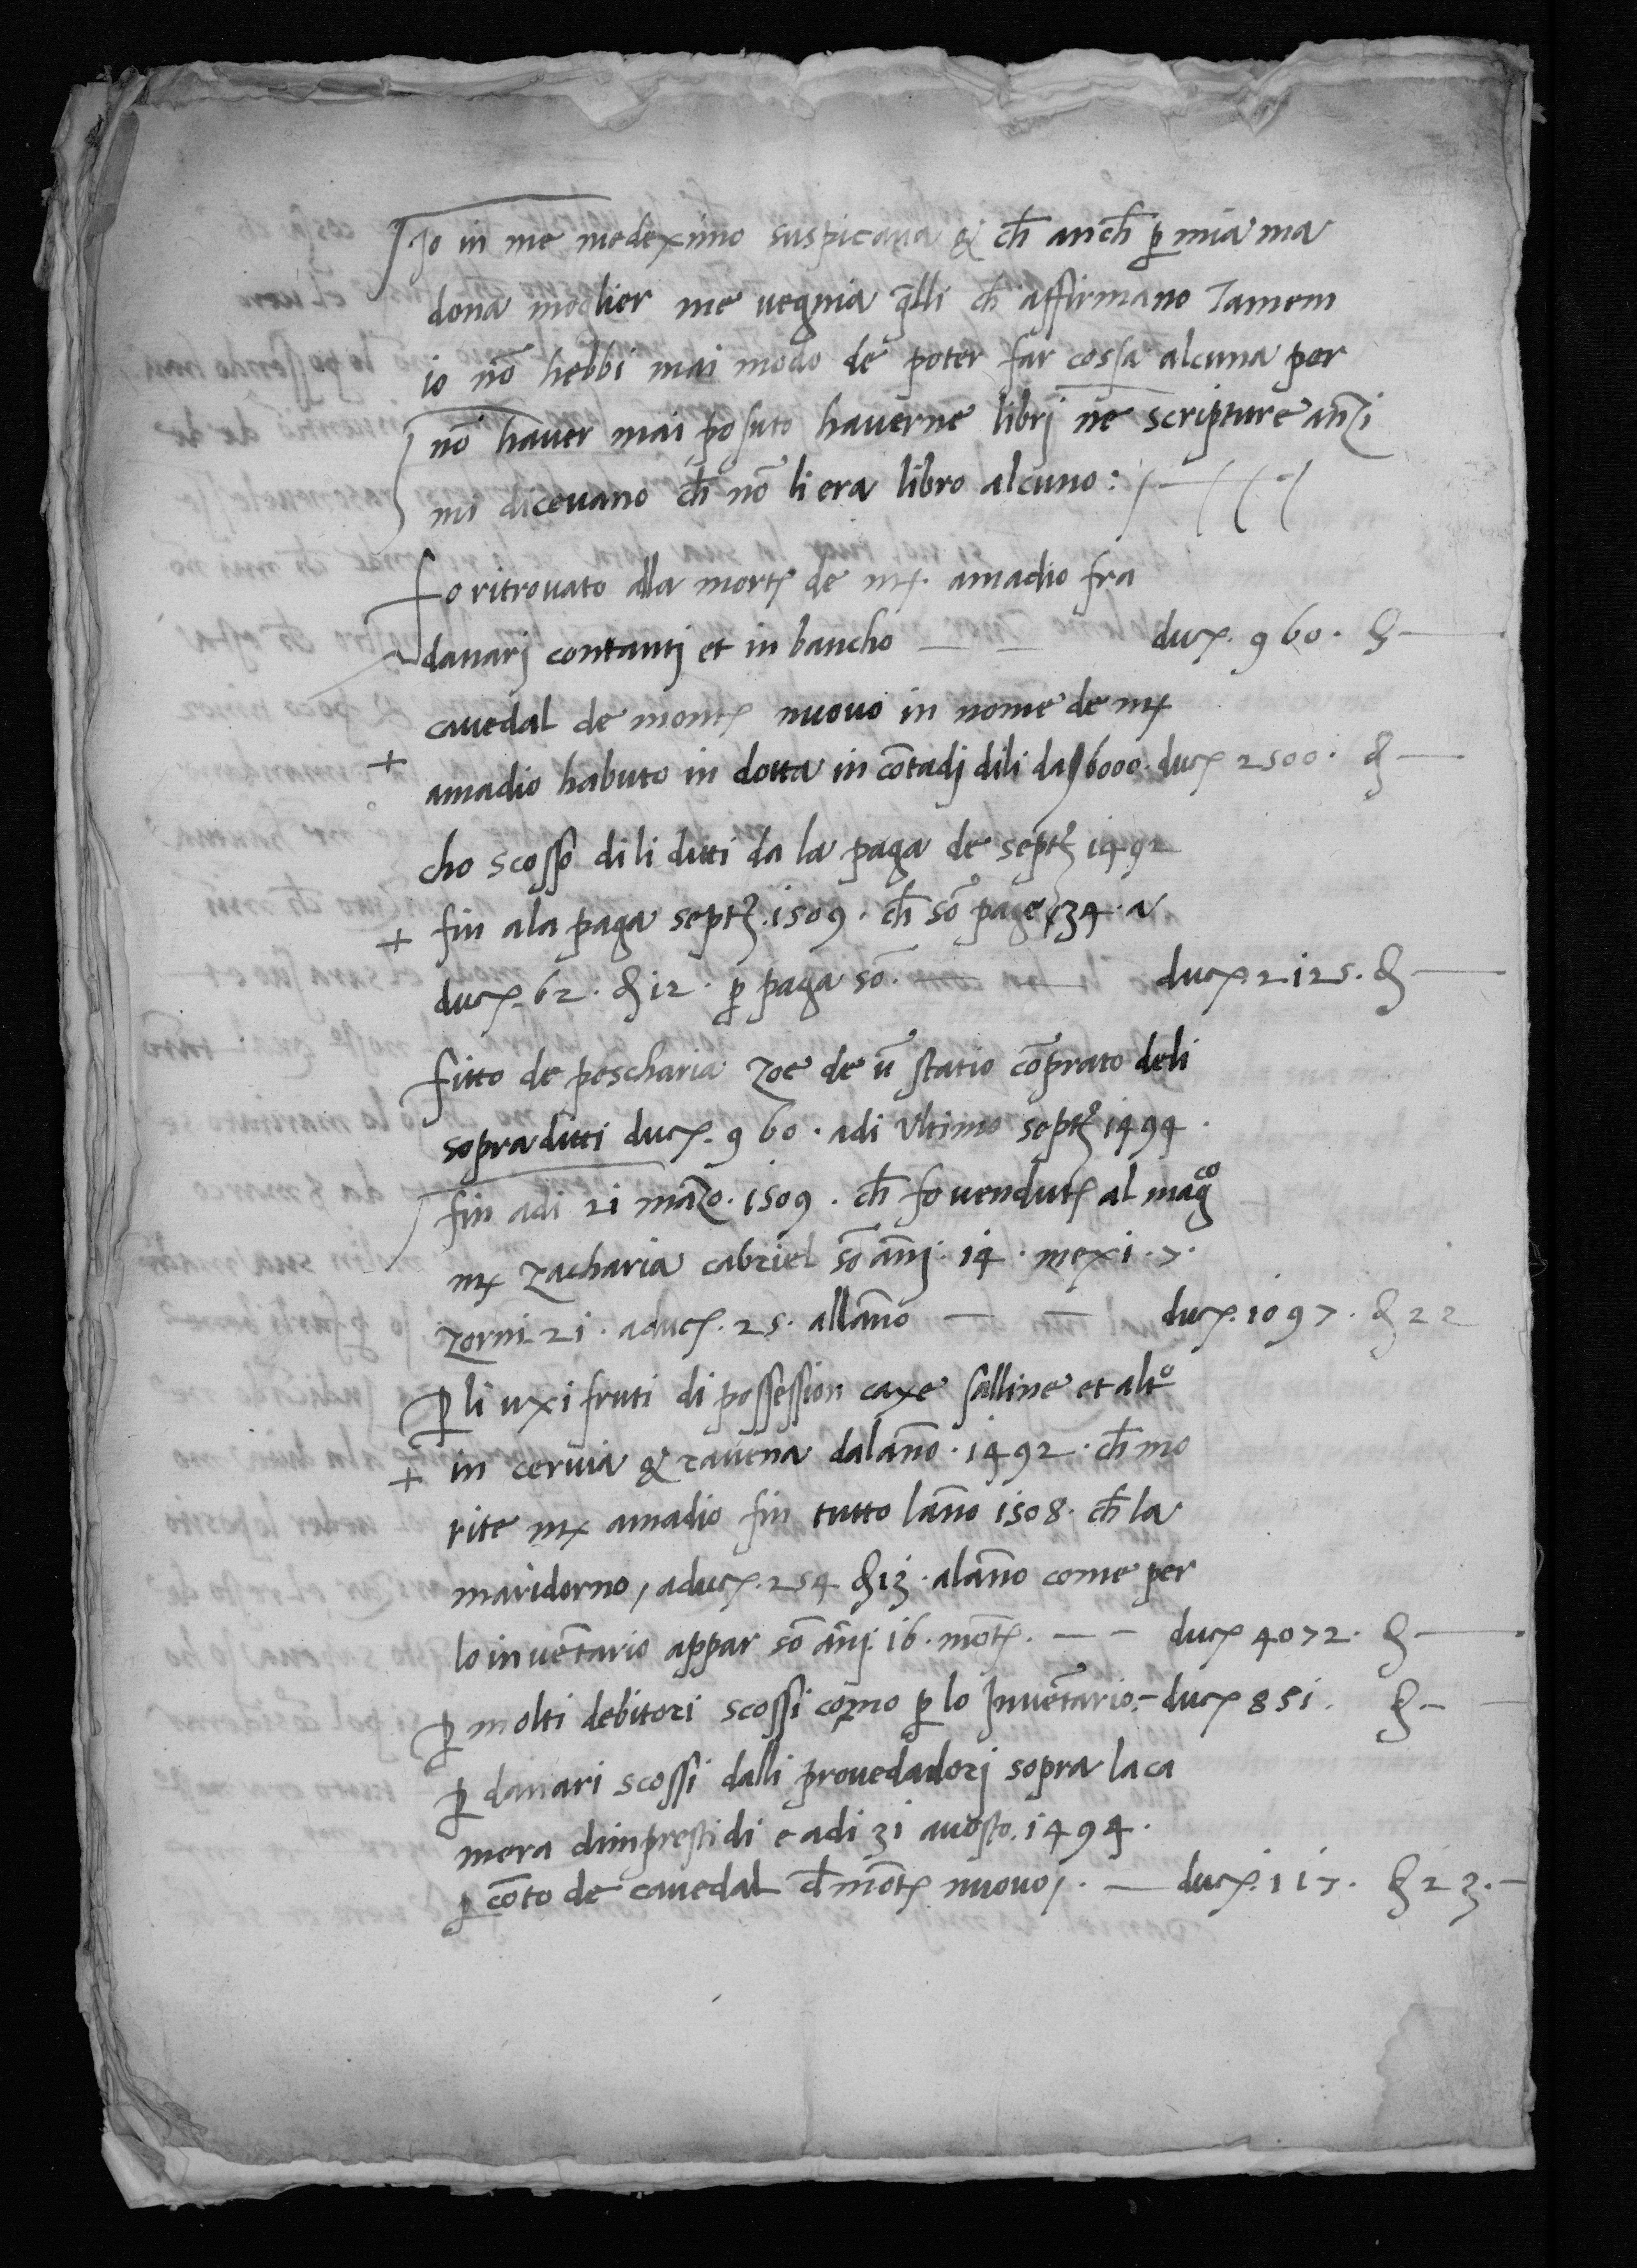 Io in me medeximo suspicava & ch̄ anch̄ ꝑ mia ma
dona moglier me vegnia q̄lli ch̄ affirmano Tamem
io nō hebbi mai modo de poter far cossa alcuna per
nō haver mai posuto haverne librj ne scripture anzi
mi dicevano ch̄ nō li era libro alcuno:
fo ritrovato alla mortꝭ de mꝭ. amadio fra
danarj contantj et in bancho — — ducꝭ. 960. ꝸ —
cavedal de montꝭ nuovo in nome de mꝭ
+ amadio habuto in dotta in cōtadj dili da 6000. ducꝭ 2500. ꝸ —
cho scosso di li ditti da la paga de septꝫ 1492
+ fin ala paga septꝫ. 1509. ch̄ sō page 34. a
ducꝭ. 62. ꝸ 12. ꝑ paga sō. — ducꝭ. 2125. ꝸ —
fitto de pescharia zoe de ū statio cōprato deli
sopraditti ducꝭ. 960. adi ultimo septꝫ 1494.
fin adi 21 mazo. 1509. ch̄ fo vendutꝭ al magco
mꝭ zacharia cabriel sō ānj. 14. mexi. 7.
zorni. 21. a ducꝭ. 25. allāno — — ducꝭ. 1097. ꝸ 22
ꝑ li uxi fruti di possession caxe salline et altro
+ in cervia & ravena dalāno. 1492. ch̄ mo
rite mꝭ amadio fin tutto lāno 1508. ch̄ la
maridorno, a ducꝭ. 254 ꝸ 13. alāno come per
lo inventario appar sō ānj. 16. mōtꝭ. — — ducꝭ 4072. ꝸ —
ꝑ molti debitori scossi como ꝑ lo Inventario. — ducꝭ 851. ꝸ — —
ꝑ danari scossi dalli provedadorj sopra la ca
mera dimprestidi e adi 31 avosto. 1494.
ꝑ cōto de cavedal d̄ mōtꝭ nuovo. — ducꝭ. 117. ꝸ 23. —